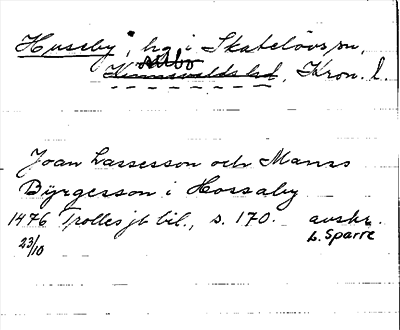 Husseby, hg i Skatelövs sn,
Allbo
Kinnevalds hd, Kron. l.
Joan Lassesson och Manss
Byrgesson i Hossaby
1476 Trolles jb bil., s. 170. avskr.
23/10 L. Sparre